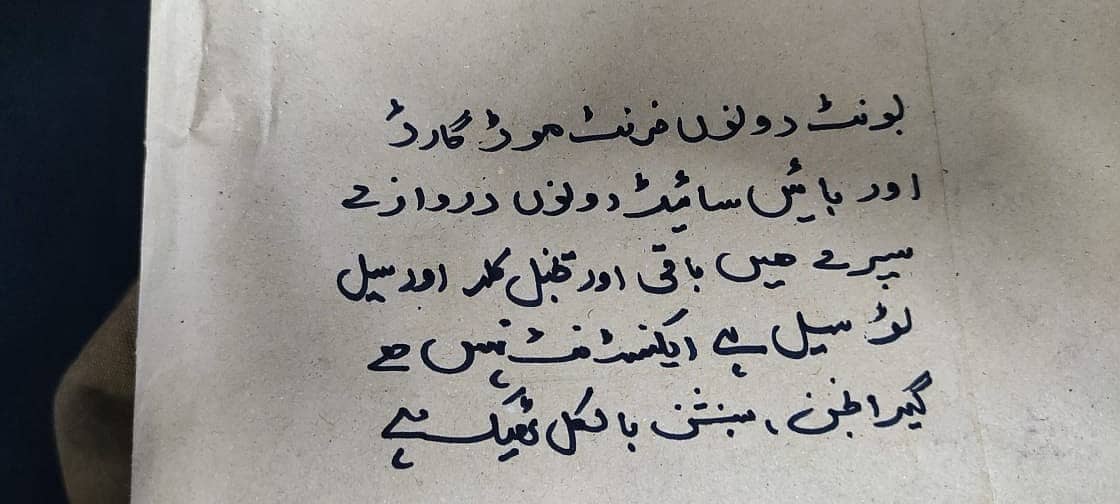 بونٹ دونوں فرنٹ موڈ گارڈ
اور بائیں سائیڈ دونوں دروازے
سپرے میں باقی اور جنبل کلر اور سیل
ٹو سیل ہے ایکسڈنٹ نہیں ہے
گیر انجن، سبنشن بالکل ٹھیک ہے